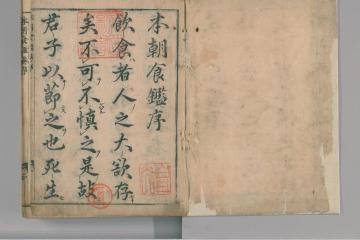 本朝食鑑序
飲食者人之大欲存
矣不可不慎之是故
君子以節之也死生